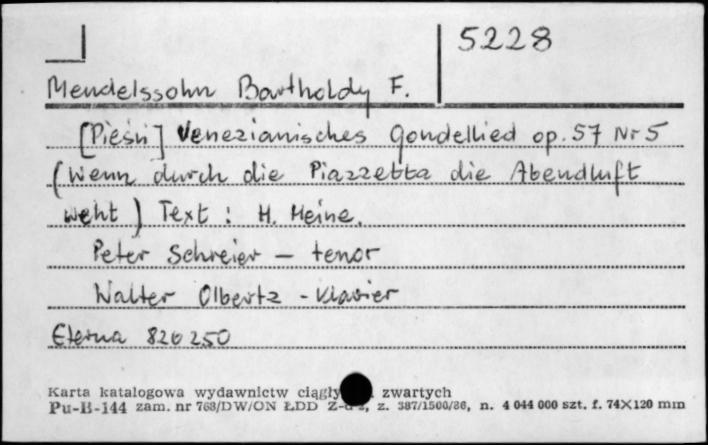 5228
Mendelssohn Bartholdy F.
[Pieśń] Venezianisches Gondellied op. 57 Nr 5
(Wenn durch die Piazzetta die Abendluft
weht) Text: H. Heine.
Peter Schreier – tenor
Walter Olbertz - Klavier
Eterna 826250
Karta katalogowa wydawnictw ciągły zwartych
Pu-B-144 zam. nr 768/DW/ON ŁDD z. 387/1500/86, n. 4 044 000 szt. f. 74×120 mm